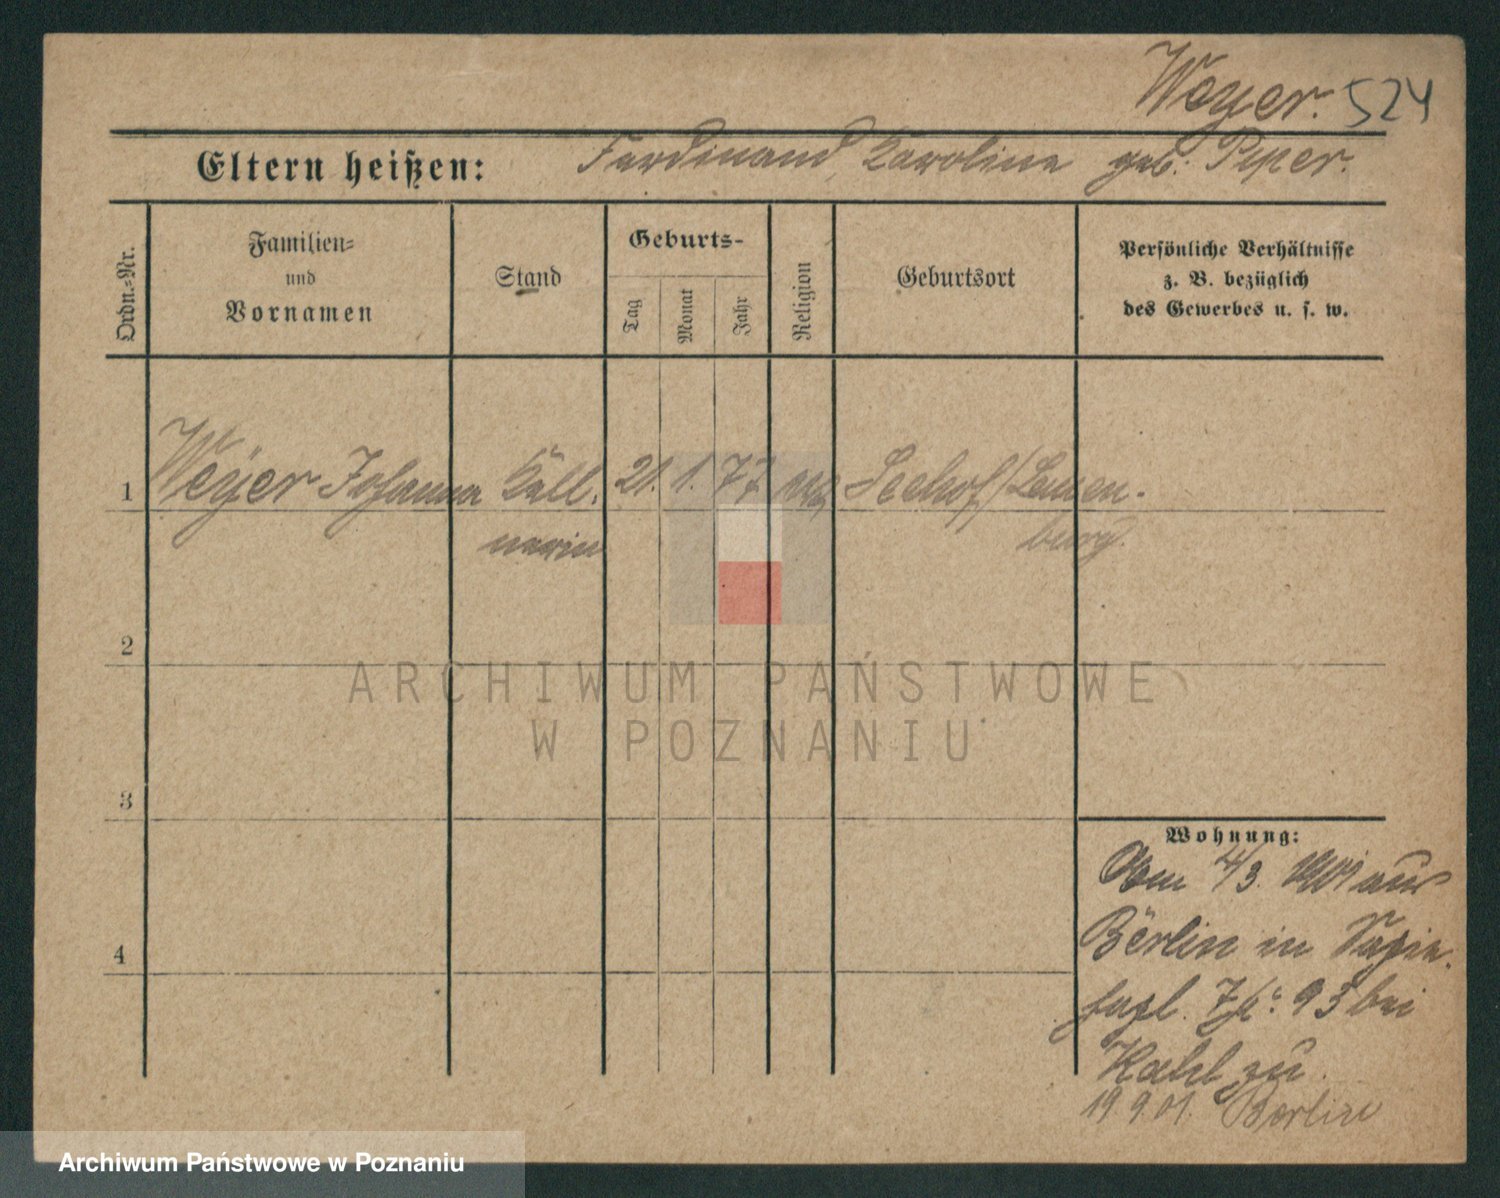 Weyer. 524
Eltern heißen: Ferdinand, Karoline geb. Piper.
Ordn.-Nr.
Familien-
und
Vornamen
Stand
Geburts-
Tag
Monat
Jahr
Religion
Geburtsort
Persönliche Verhältnisse
z. B. bezüglich
des Gewerbes u. s. w.
1 Weyer Johanna Kell. 21. 1. 77 Seehof/Lauen-
nerin burg.
2
3
4
Wohnung:
4/3. 1901 aus
Berlin in
bei
Kahl zu
19 9.01. Berlin
ARCHIWUM PAŃSTWOWE
W POZNANIU
Archiwum Państwowe w Poznaniu